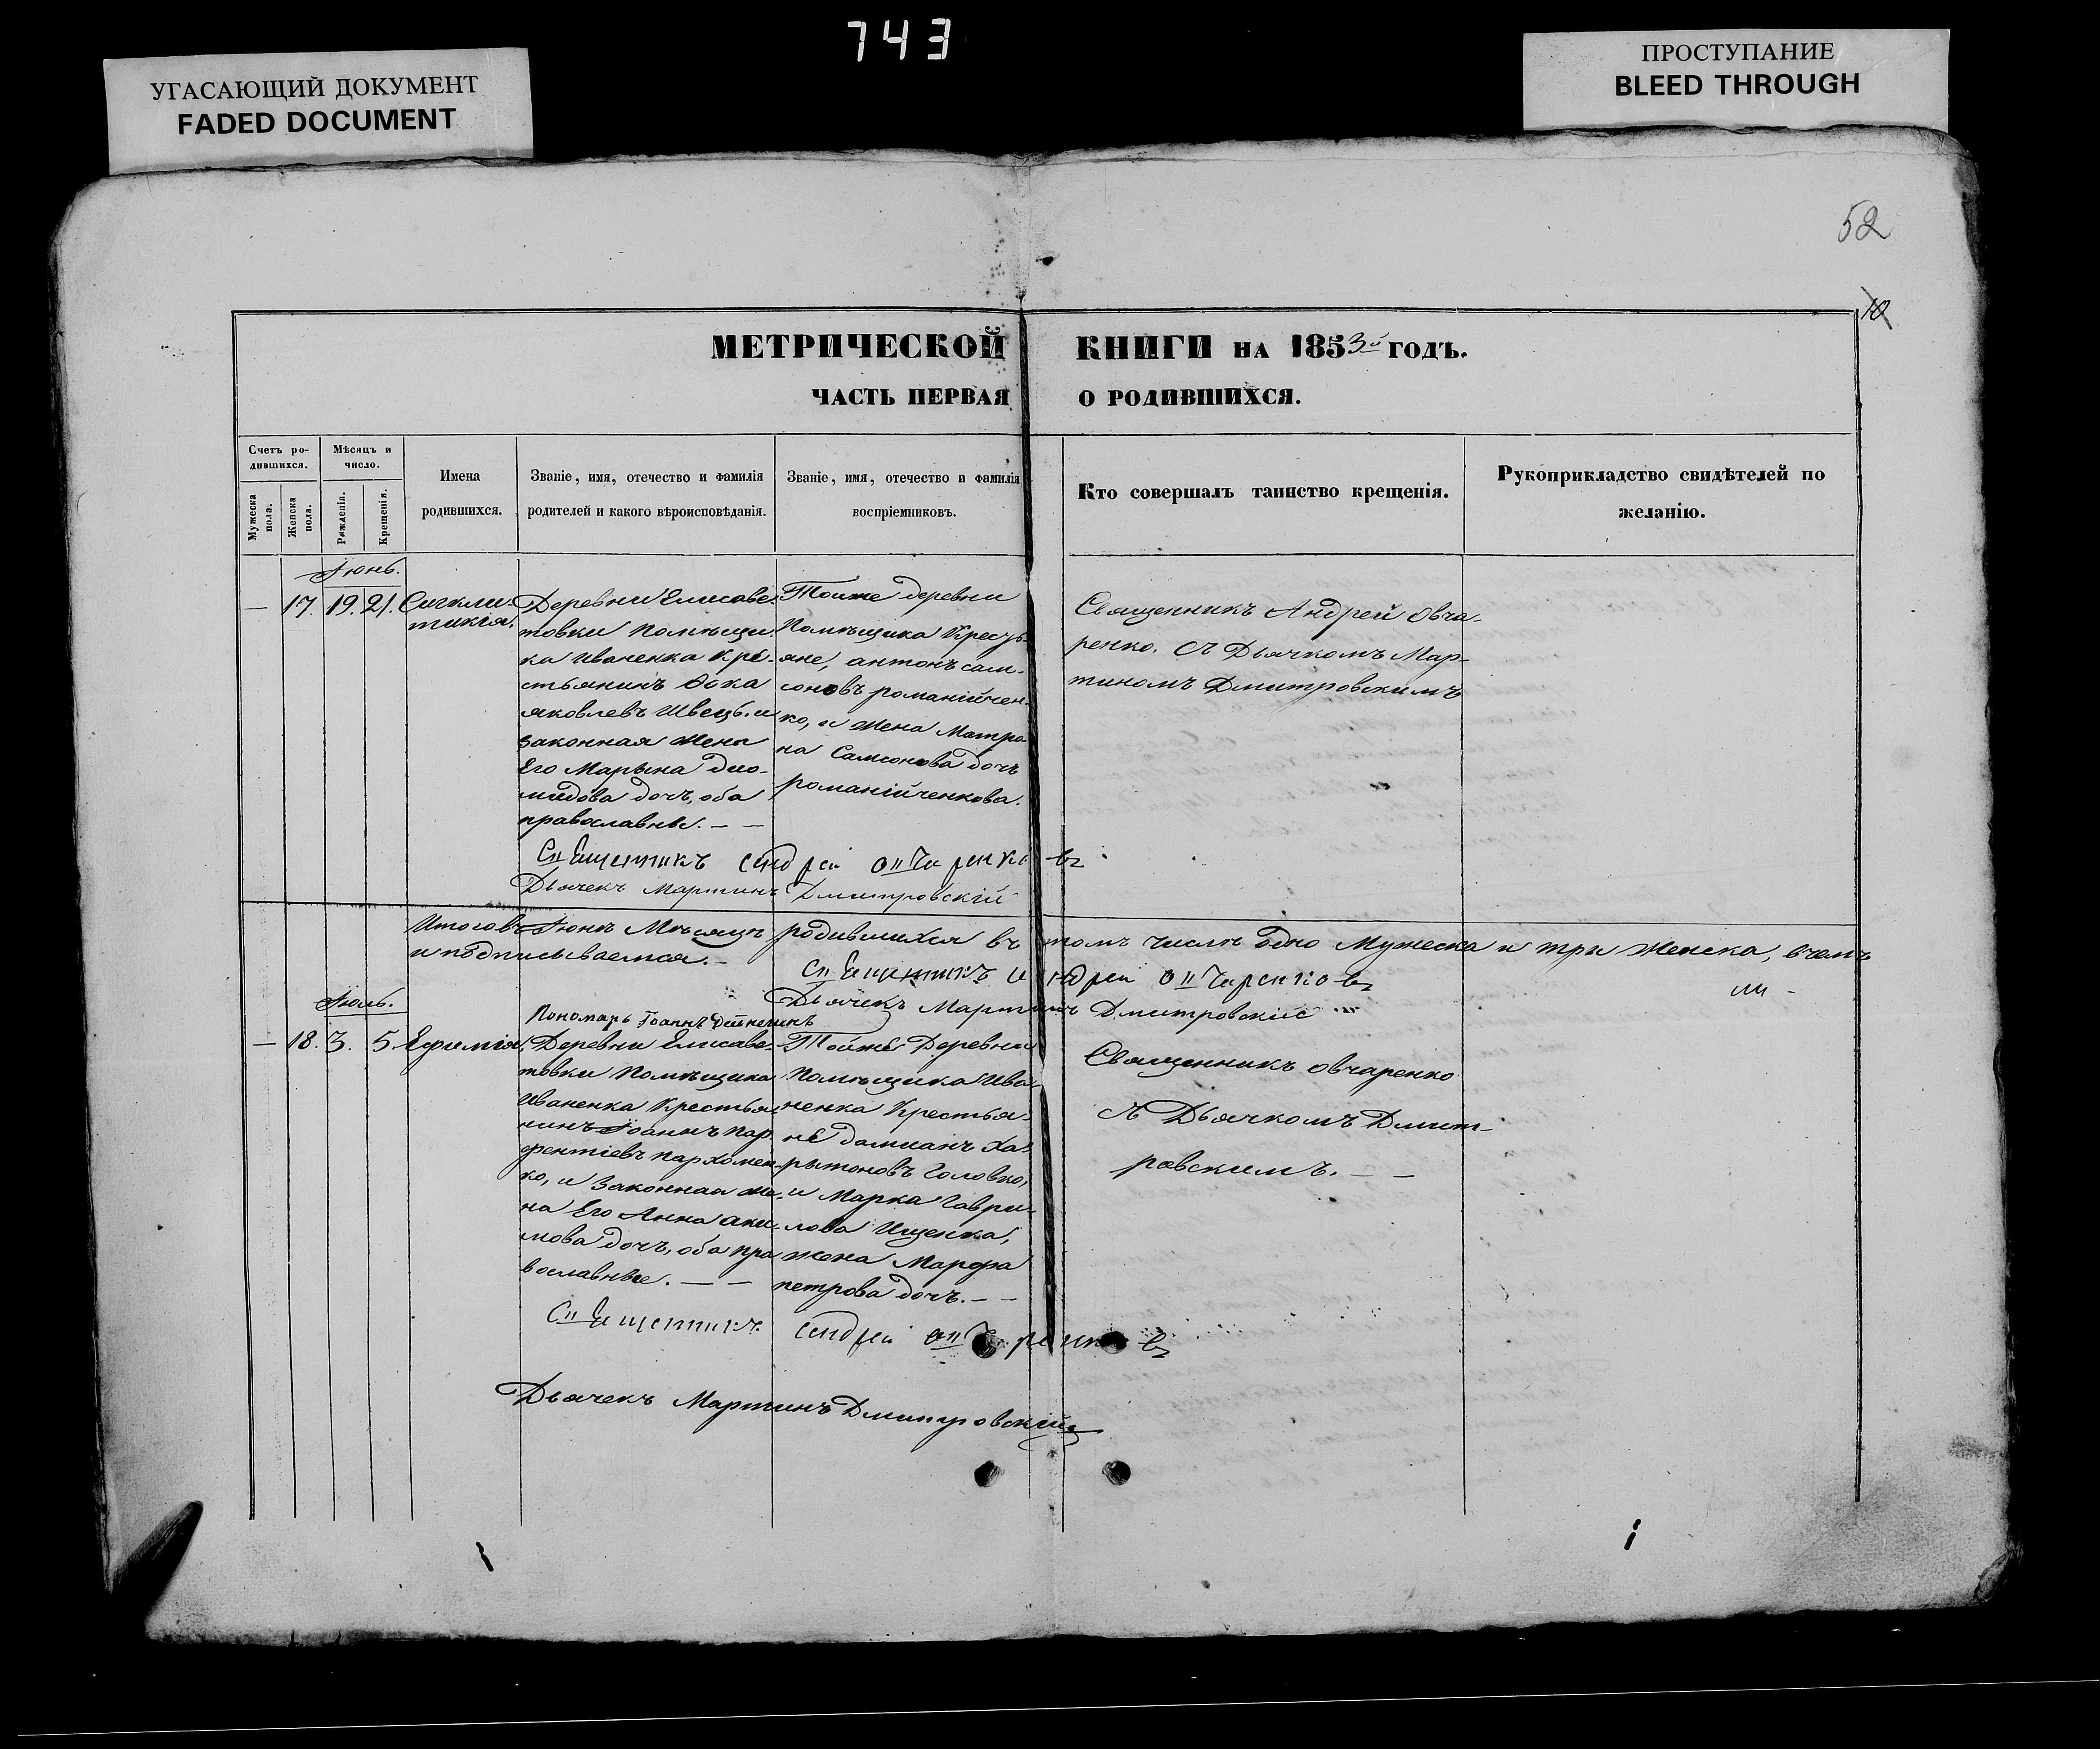 743
УГАСАЮЩИЙ ДОКУМЕНТ
FADED DOCUMENT
ПРОСТУПАНИЕ
BLEED THROUGH
52
10
МЕТРИЧЕСКОЙ КНИГИ НА 1853й ГОДЪ.
ЧАСТЬ ПЕРВАЯ О РОДИВШИХСЯ.
Счетъ ро-
дившихся.
Мужеска пола.
Женска пола.
Мѣсяцъ и
число.
Рожденія.
Крещенія.
Имена
родившихся.
Званіе, имя, отечество и фамилія
родителей и какого вѣроисповѣданія.
Званіе, имя, отечество и фамилія
воспріемниковъ.
Кто совершалъ таинство крещенія.
Рукоприкладство свидѣтелей по
желанію.
Іюнь.
— 17. 19. 21.
Сигкли-
тикія.
Деревни Елисаве-
товки помѣщи-
ка Иваненка кре-
стьянинъ Фока
яковлевъ Швець, и
законная жена
Его Марьина дио-
мидова дочъ, оба
православны. — —
Тоиже деревни
Помѣщика Кресть-
яне, антонъ сам-
соновъ романійчен-
ко, и жена Матро-
на Самсонова дочъ
романійченкова.
Священникъ Андрей Овча-
ренко. Съ Дьячкомъ Мар-
тиномъ Дмитровскимъ
Священникъ Андрей Овчаренковъ
Дьячекъ Мартинъ Дмитровскій
Итого въ Іюнѣ Мѣсяцѣ родившихся въ томъ числѣ одно Мужеска и три Женска, вчемъ
и подписываемся. —
Священникъ Андрей Овчаренковъ
Дьячекъ Мартинъ Дмитровскій
Пономарь Іоаннъ
Іюль.
— 18. 3. 5.
Ефимія,
Деревни Елисаве-
товки Помѣщика
Иваненка Крестья-
нинъ Іоаннъ пар-
фентіевъ пархомен-
ко, и законная же-
на Его Анна аки-
мова дочъ, оба пра
вославные. — —
Тойже Деревни
Помѣщика Ива-
ненка Крестья-
не дамианъ Ха-
рытоновъ Головко,
и Марка Гаври-
лова Ищенка,
жена Марфа
петрова дочъ. — —
Священникъ Овчаренко
съ Дьячкомъ Дмит-
ровскимъ. — —
Священникъ Андрей Овчаренковъ
Дьячекъ Мартинъ Дмитровскій